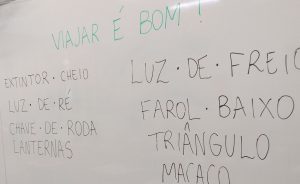 VIAJAR É BOM!
EXTINTOR·CHEIO
LUZ·DE·RÉ
CHAVE·DE·RODA
LANTERNAS
LUZ·DE·FREIO
FAROL·BAIXO
TRIÂNGULO
MACACO